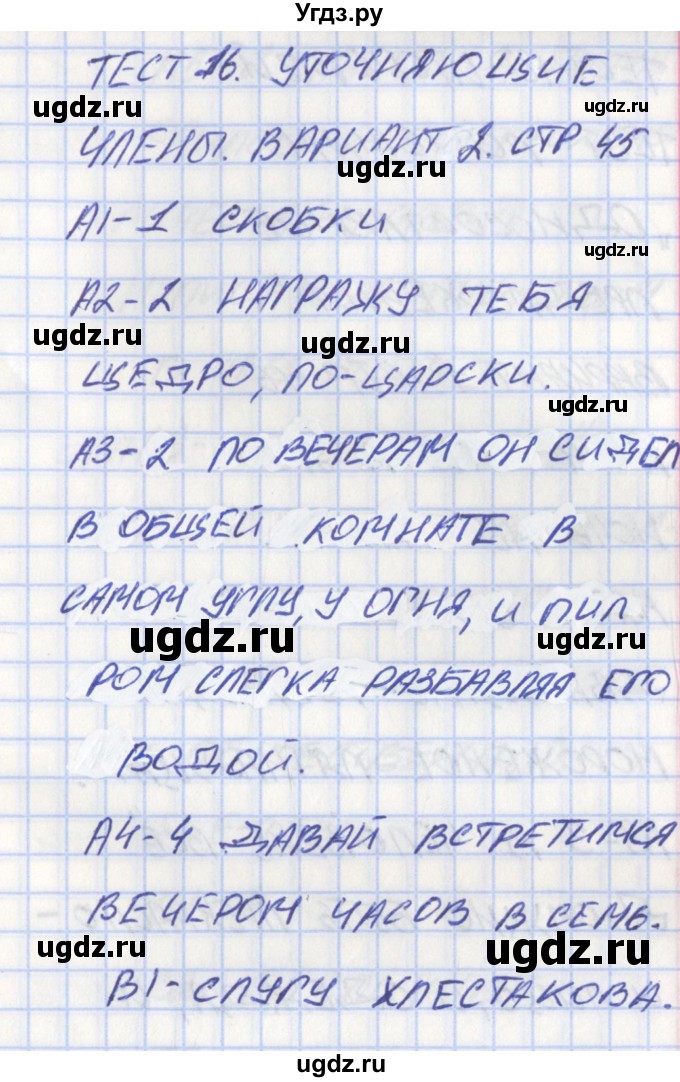 Угдз.ру
ТЕСТ 16. УТОЧНЯЮЩИЕ
ugdz.ru
ugdz.ru
ЧЛЕНЫ. ВАРИАНТ 2. СТР 45
ugdz.ru
А1-1 СКОБКИ
ugdz.ru
А2-2 НАГРАЖУ ТЕБЯ
ugdz.ru
ugdz.ru
ЩЕДРО, ПО-ЦАРСКИ.
ugdz.ru
А3-2 ПО ВЕЧЕРАМ ОН СИДЕЛ
В ОБЩЕЙ КОМНАТЕ В
САМОМ УГЛУ, У ОГНЯ, И ПИЛ
ugdz.ru
ugdz.ru
РОМ СЛЕГКА РАЗБАВЛЯЯ ЕГО
ВОДОЙ.
А4-4 ДАВАЙ ВСТРЕТИМСЯ
ВЕЧЕРОМ ЧАСОВ В СЕМЬ.
ugdz.ru
ugdz.ru
В1- СЛУГУ ХЛЕСТАКОВА.
ugdz.ru